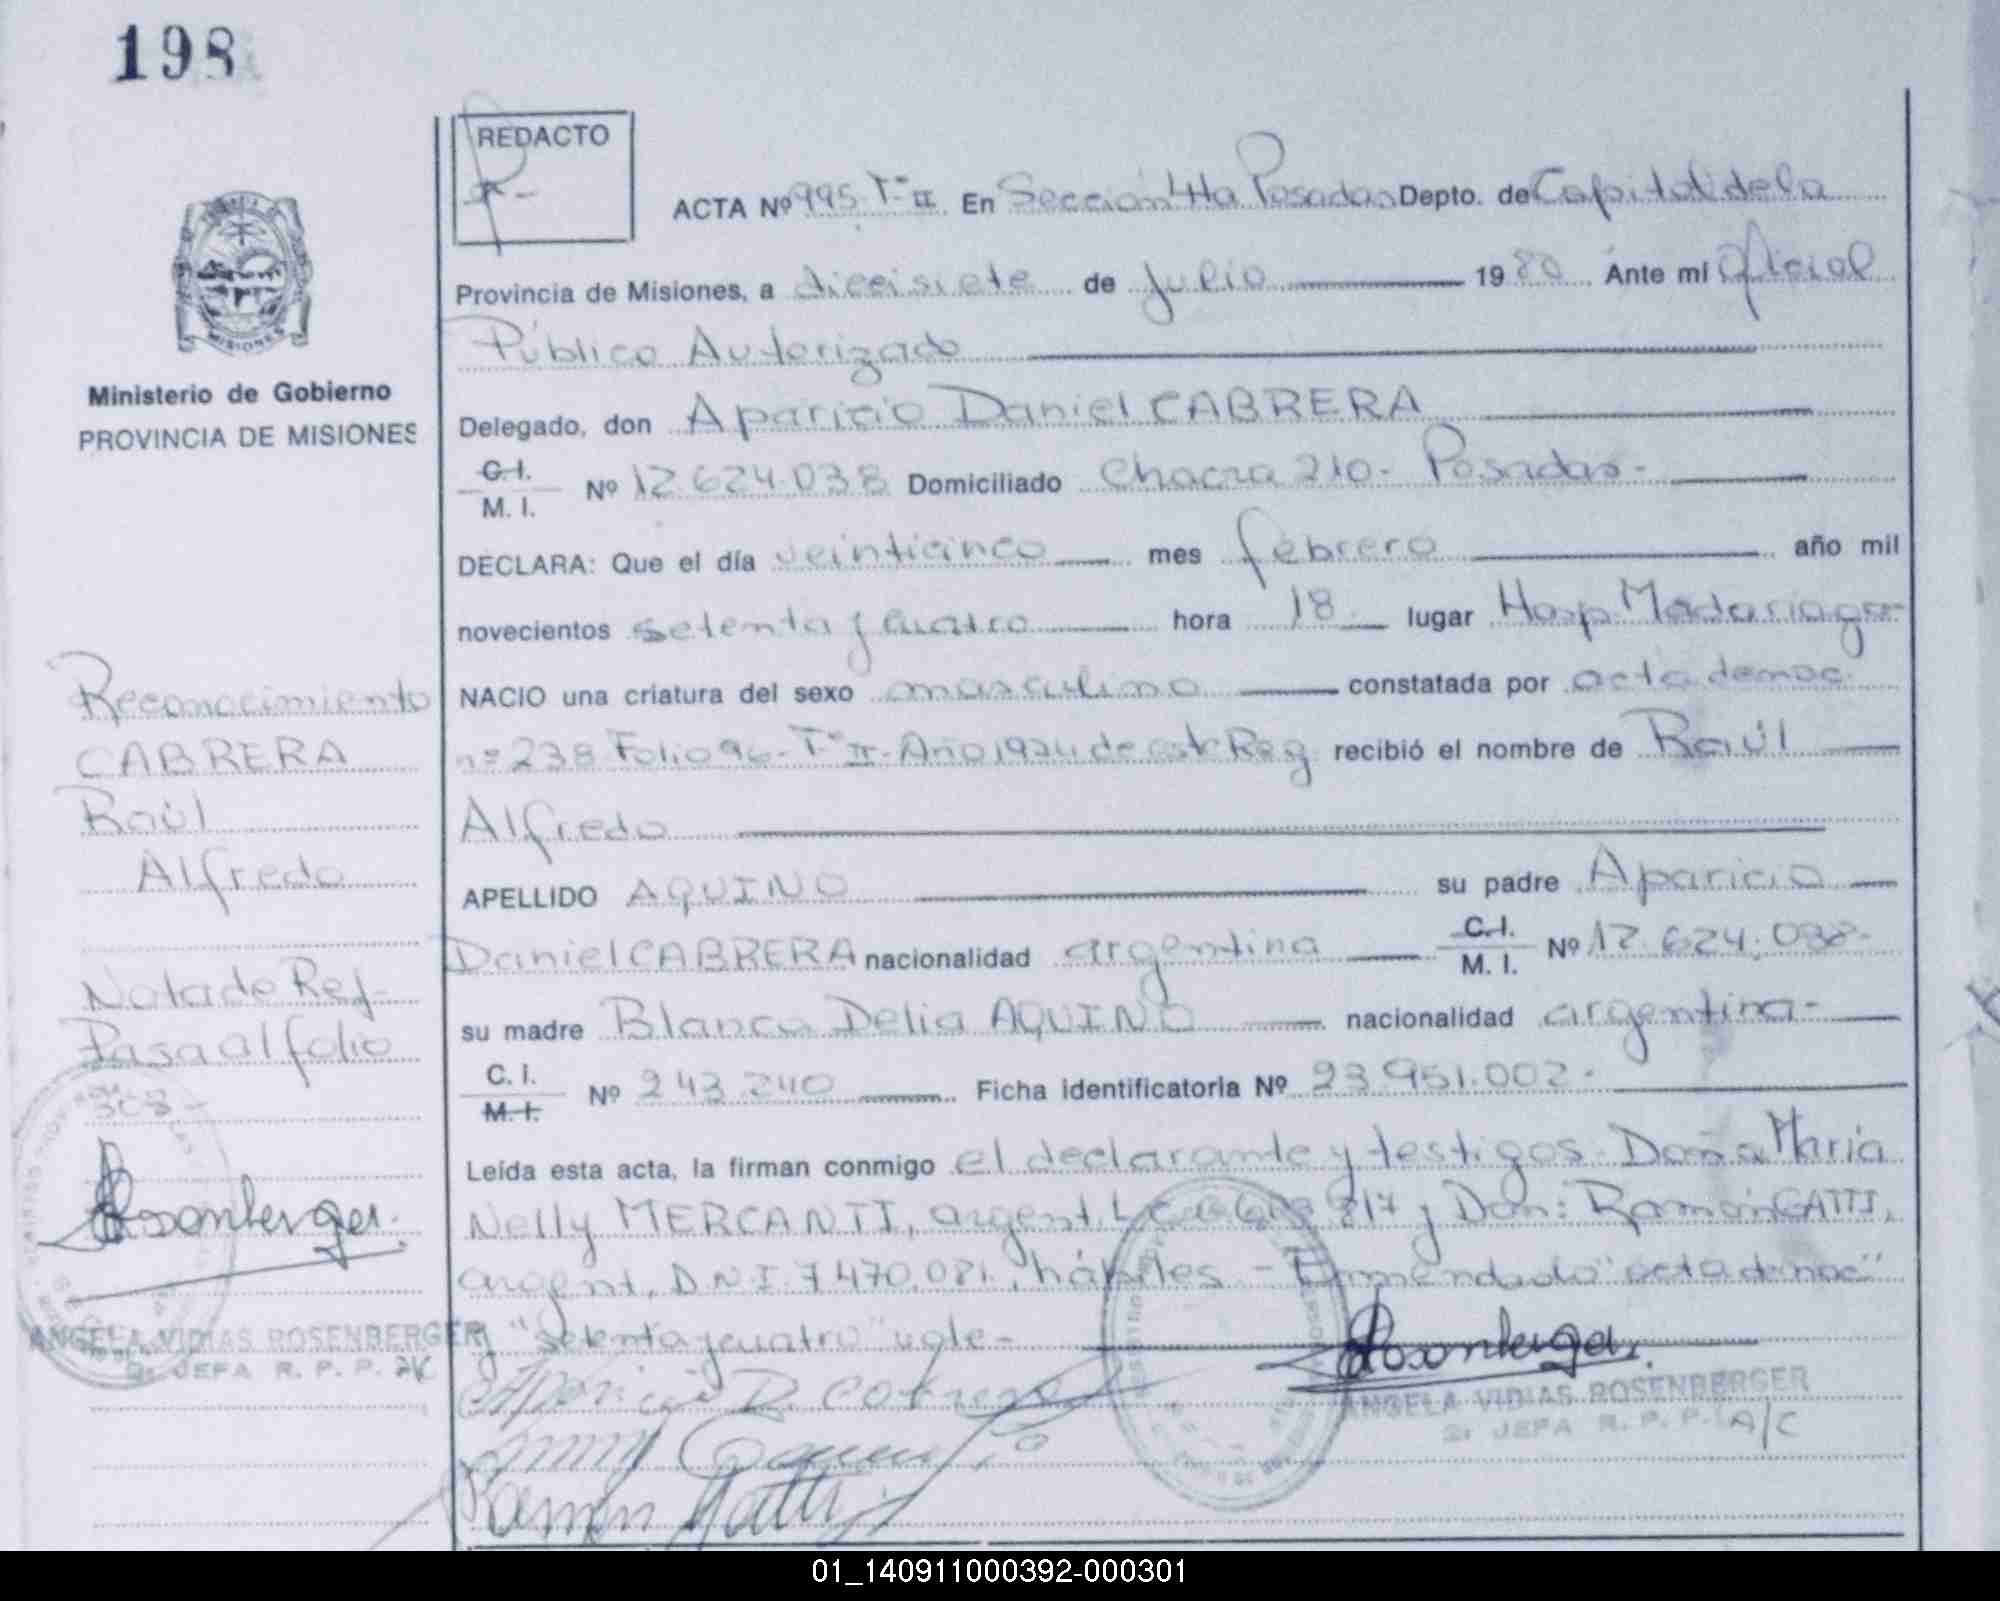 198
REDACTO
ACTA Nº 995 Tº II En Sección 4ta Posadas Depto. de Capital de la
Provincia de Misiones, a diecisiete de Julio 1980 Ante mi Oficial
Público Autorizado
Delegado, don Aparicio Daniel CABRERA
C. I.
M. I. Nº 12.624.038 Domiciliado Chacra 210 - Posadas -
DECLARA: Que el día veinticinco mes febrero año mil
novecientos setenta y cuatro hora 18 lugar Hosp. Madariaga
NACIO una criatura del sexo masculino constatada por acta de nac.
nº 238 Folio 96 - Tº II - Año 1974 de este Reg recibió el nombre de Raúl
Alfredo
APELLIDO AQUINO su padre Aparicio
Daniel CABRERA nacionalidad argentina C. I.
M. I. Nº 12.624.038-
su madre Blanca Delia AQUINO nacionalidad argentina -
C. I.
M. I. Nº 243.240 Ficha identificatoria Nº 23.951.002 -
Leída esta acta, la firman conmigo el declarante y testigos - Doña María
Nelly MERCANTI, argent. L.C. y Don: Ramón GATTI,
argent. D.N.I. 7.470.081, hábiles - Enmendado "acta de nac"
y "setenta y cuatro" vale -
Aparicio D. Cabrera
Ramón Gatti
Rosenberger
ANGELA VIDIAS ROSENBERGER
2: JEFA R. P. P. A/C
MISIONES
Ministerio de Gobierno
PROVINCIA DE MISIONES
Reconocimiento
CABRERA
Raúl
Alfredo
Nota de Ref-
Pasa al folio
308 -
Rosenberger
ANGELA VIDIAS ROSENBERGER
2: JEFA R. P. P. A/C
01_140911000392-000301